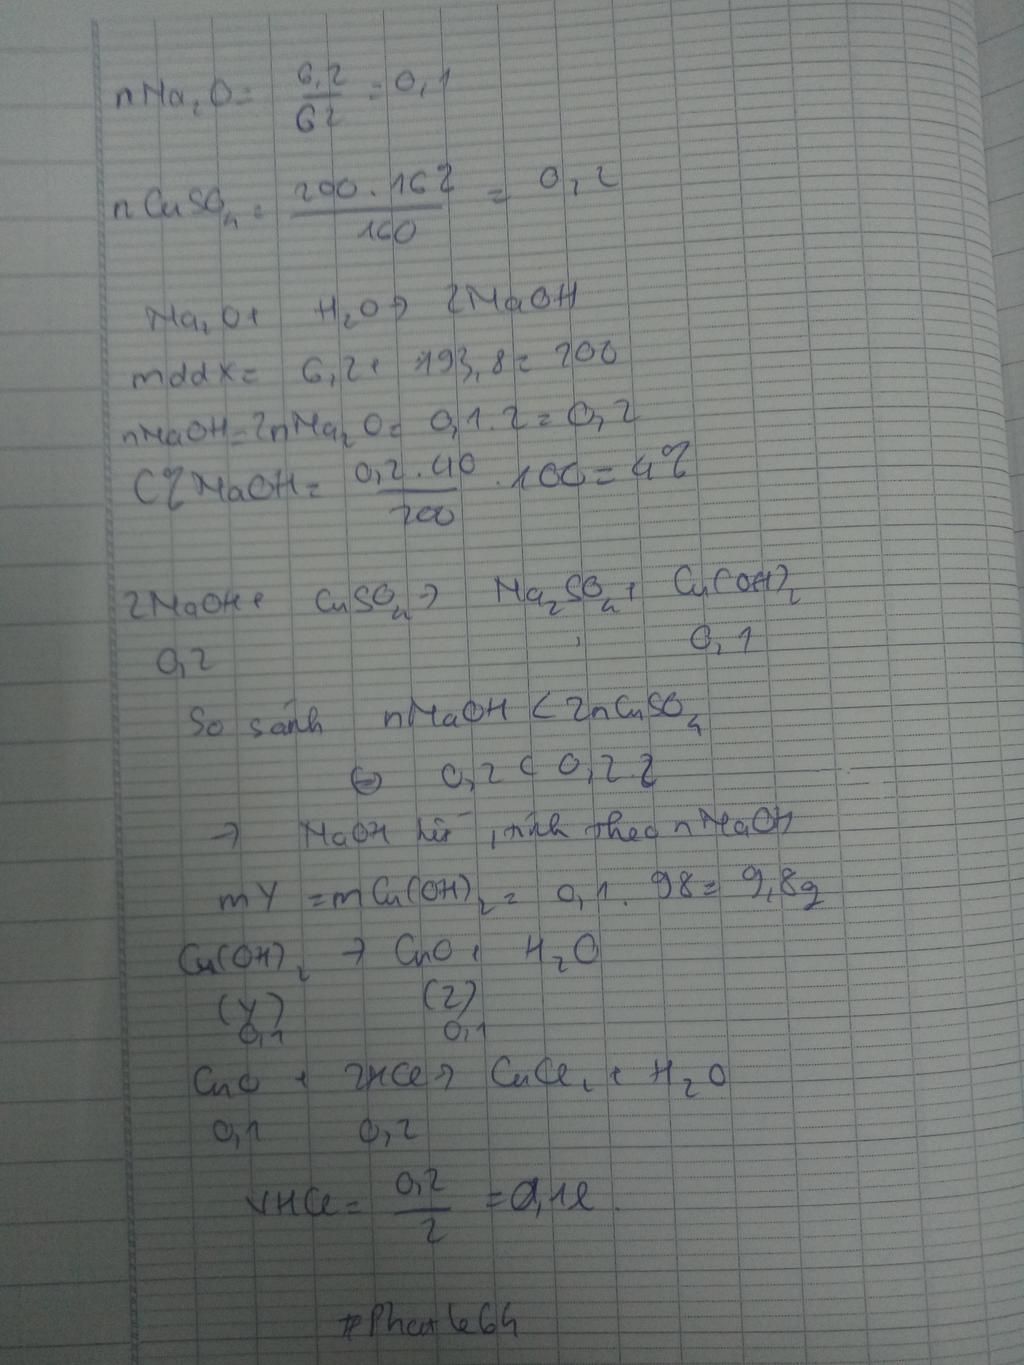 nNa₂O = 6,2/62 = 0,1
nCuSO₄ = 200.16%/160 = 0,2
Na₂O + H₂O → 2NaOH
mddX = 6,2 + 193,8 = 200
nNaOH = 2nNa₂O = 0,1.2 = 0,2
C%NaOH = 0,2.40/200 .100 = 4%
2NaOH + CuSO₄ → Na₂SO₄ + Cu(OH)₂
0,2 0,1
So sánh nNaOH < 2nCuSO₄
⇔ 0,2 < 0,2.2
→ NaOH hết, tính theo nNaOH
mY = mCu(OH)₂ = 0,1.98 = 9,8g
Cu(OH)₂ → CuO + H₂O
(Y) (Z)
0,1 0,1
CuO + 2HCl → CuCl₂ + H₂O
0,1 0,2
VHCl = 0,2/2 = 0,1l.